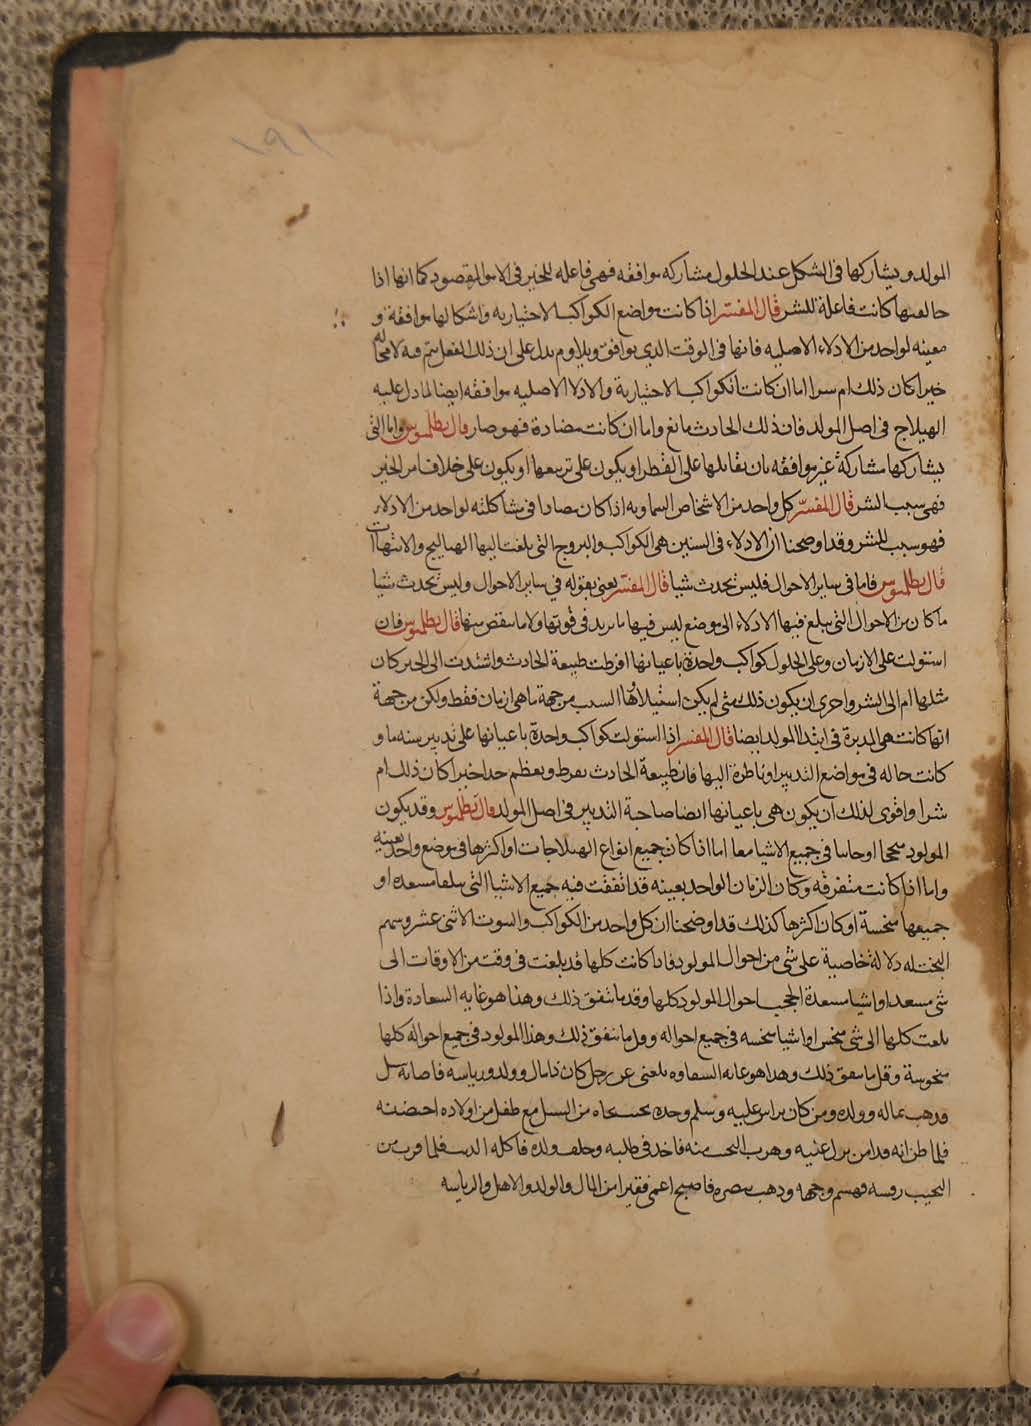 ١٩١
المولد ويشاركها فى الشكل عند الحلول مشاركه موافقه فهى فاعله للخير فى الامر المقصود كما انها اذا
خالفتها كانت فاعلة للشر قال المفسر اذا كانت مواضع الكواكب الاختياريه واشكالها موافقة و
معينه لواحد من الادلاء الاصليه فانها فى الوقت الذي يوافق ويلاوم يدل على ان ذلك الفعل يتم فيه لا محاله
خيرا كان ذلك ام شرا اما ان كانت الكواكب الاختيارية والادلا الاصليه موافقه ايضا لما دل عليه
الهيلاج فى اصل المولد فان ذلك الحادث نافع واما ان كانت مضادة فهو ضار قال بطلميوس واما التى
يشاركها مشاركة غير موافقه بان تقابلها على القطر او يكون على تربيعها او يكون على خلاف امر الخير
فهى سبب الشر قال المفسر كل واحد من الاشخاص السماويه اذا كان مضادا فى مشاكلته لواحد من الادلاء
فهو سبب للشر وقد اوضحنا ان الادلاء فى السنين هى الكواكب والبروج التى بلغت اليها الهياليج والانتهاات
قال بطلميوس فاما فى ساير الاحوال فليس تحدث شيا قال المفسر يعنى بقوله في ساير الاحوال وليس تحدث شيا
ما كان من الاحوال التى يبلغ فيها الادلاء الى موضع ليس فيها ما يزيد فى قوتها ولا ما ينقص منها قال بطلميوس فان
استولت على الازمان وعلى الحلول كواكب واحدة باعيانها افرطت طبيعة الحادث واشتدت الى الخير كان
مثلها ام الى الشر واحرى ان يكون ذلك متى لم يكن استيلاؤها السبب من جهة ما هى ازمان فقط ولكن من جهة
انها كانت هى المدبرة فى ابتدا المولد ايضا قال المفسر اذا استولت كواكب واحدة باعيانها على تدبير سنه ما و
كانت حاله فى مواضع التدبير او ناظرة اليها فان طبيعة الحادث يفرط ويعظم جدا خيرا كان ذلك ام
شرا واقوى لذلك ان يكون هى باعيانها ايضا صاحبة التدبير فى اصل المولد قال بطلميوس وقد يكون
المولود منجحا او خايبا فى جميع الاشيا معا اما اذا كان جميع انواع الهيلاجات او اكثرها فى موضع واحد بعينه
واما اذا كانت متفرقه وكان الزمان الواحد بعينه قد اتفقت فيه جميع الاشياا التى يبلغها مسعده او
جميعها منحسة او كان اكثرها كذلك قد اوضحنا ان كل واحد من الكواكب والبيوت الاثنى عشر وسهم
البخت له دلالة خاصية على شى من احوال المولود فاذا كانت كلها قد بلغت فى وقت من الاوقات الى
شى مسعد او اشيا مسعدة احوال المولود كلها وقد ما تتفق ذلك وهذا هو غايه السعادة واذا
بلغت كلها الى شى منحس او اشيا منحسه فى جميع احواله وقل ما تتفق ذلك وهذا المولود فى جميع احواله كلها
منحوسة وقل ما يتفق ذلك وهذا هو غايه الشقاوه بلغنى عن رجل كان ذا مال وولد ورياسه فاصابه سيل
فذهب بماله وولده ومن كان يراس عليه وسلم وحده من السيل مع طفل من اولاده احضنه
فلما ظن انه قد امن نزل عنه وهرب النجيب منه فاخذ فى طلبه وخلف ولده فاكله الذيب فلما قرب من
النجيب رفسه فهشم وجهه وذهب بصره فاصبح اعمى فقيرا من المال والولد والاهل والرياسه